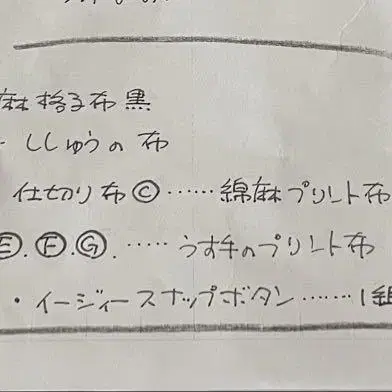 麻格子布黒
ししゅうの布
仕切り布Ⓒ……綿麻プリント布
Ⓔ.Ⓕ.Ⓖ.……うす手のプリント布
・イージースナップボタン……1組